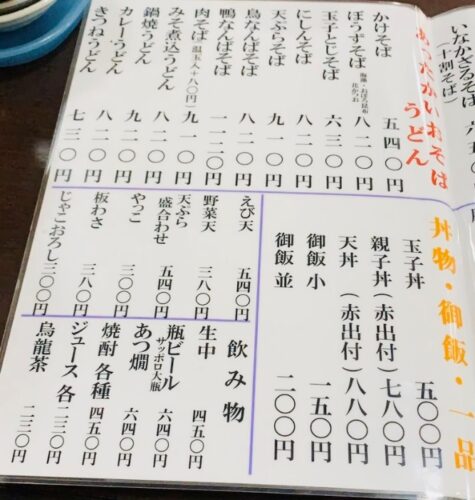 いなかざるそば
(十割そば)
あったかいおそば
うどん
かけそば 五四〇円
ぼうずそば 海藻・おぼろ昆布 花かつお 八二〇円
玉子とじそば 六三〇円
にしんそば 八二〇円
天ぷらそば 九一〇円
鳥なんばそば 八二〇円
鴨なんばそば 一一二〇円
肉そば(温玉入+八〇円) 九一〇円
みそ煮込うどん 八二〇円
鍋焼うどん 八二〇円
カレーうどん 八二〇円
きつねうどん 七三〇円
丼物・御飯・一品
玉子丼 五〇〇円
親子丼(赤出付) 七八〇円
天丼(赤出付) 八八〇円
御飯小 一五〇円
御飯並 二〇〇円
えび天 五四〇円
野菜天 三八〇円
天ぷら盛合わせ 五四〇円
やっこ 三〇〇円
板わさ 三八〇円
じゃこおろし 三〇〇円
飲み物
生中 四五〇円
瓶ビール サッポロ大瓶 六四〇円
あつ燗 六四〇円
焼酎 各種 四五〇円
ジュース 各 二三〇円
烏龍茶 二三〇円